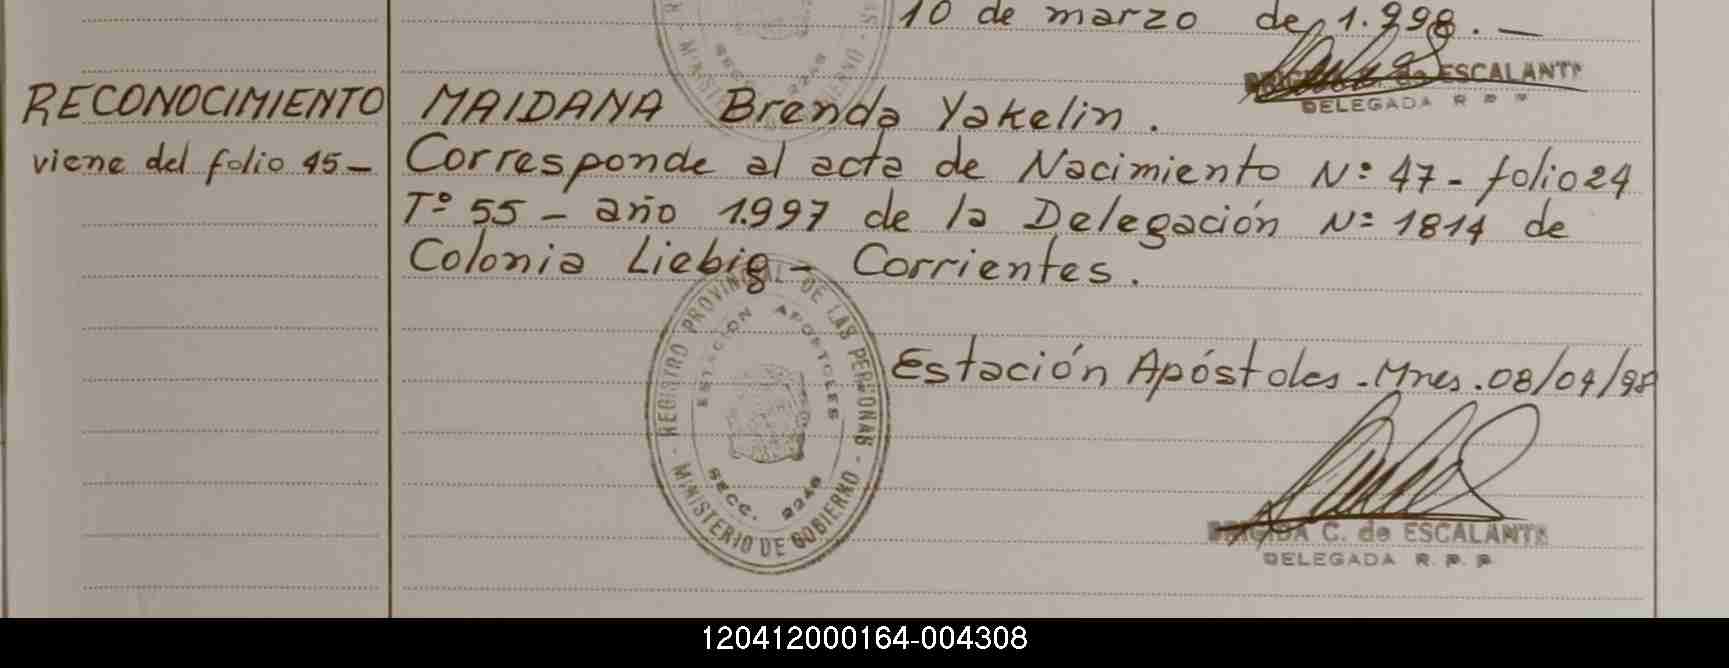 10 de marzo de 1.998.—
BRIGIDA C. de ESCALANTE
DELEGADA R P P
RECONOCIMIENTO
viene del folio 45-
MAIDANA Brenda Yakelin.
Corresponde al acta de Nacimiento N: 47- folio 24
Tº 55 - año 1.997 de la Delegación N: 1814 de
Colonia Liebig - Corrientes.
- REGISTRO PROVINCIAL DE LAS PERSONAS -
MINISTERIO DE GOBIERNO
ESTACION APOSTOLES
SECC. 2248
Estación Apóstoles.Mnes.08/04/98
BRIGIDA C. de ESCALANTE
DELEGADA R. P. P
120412000164-004308